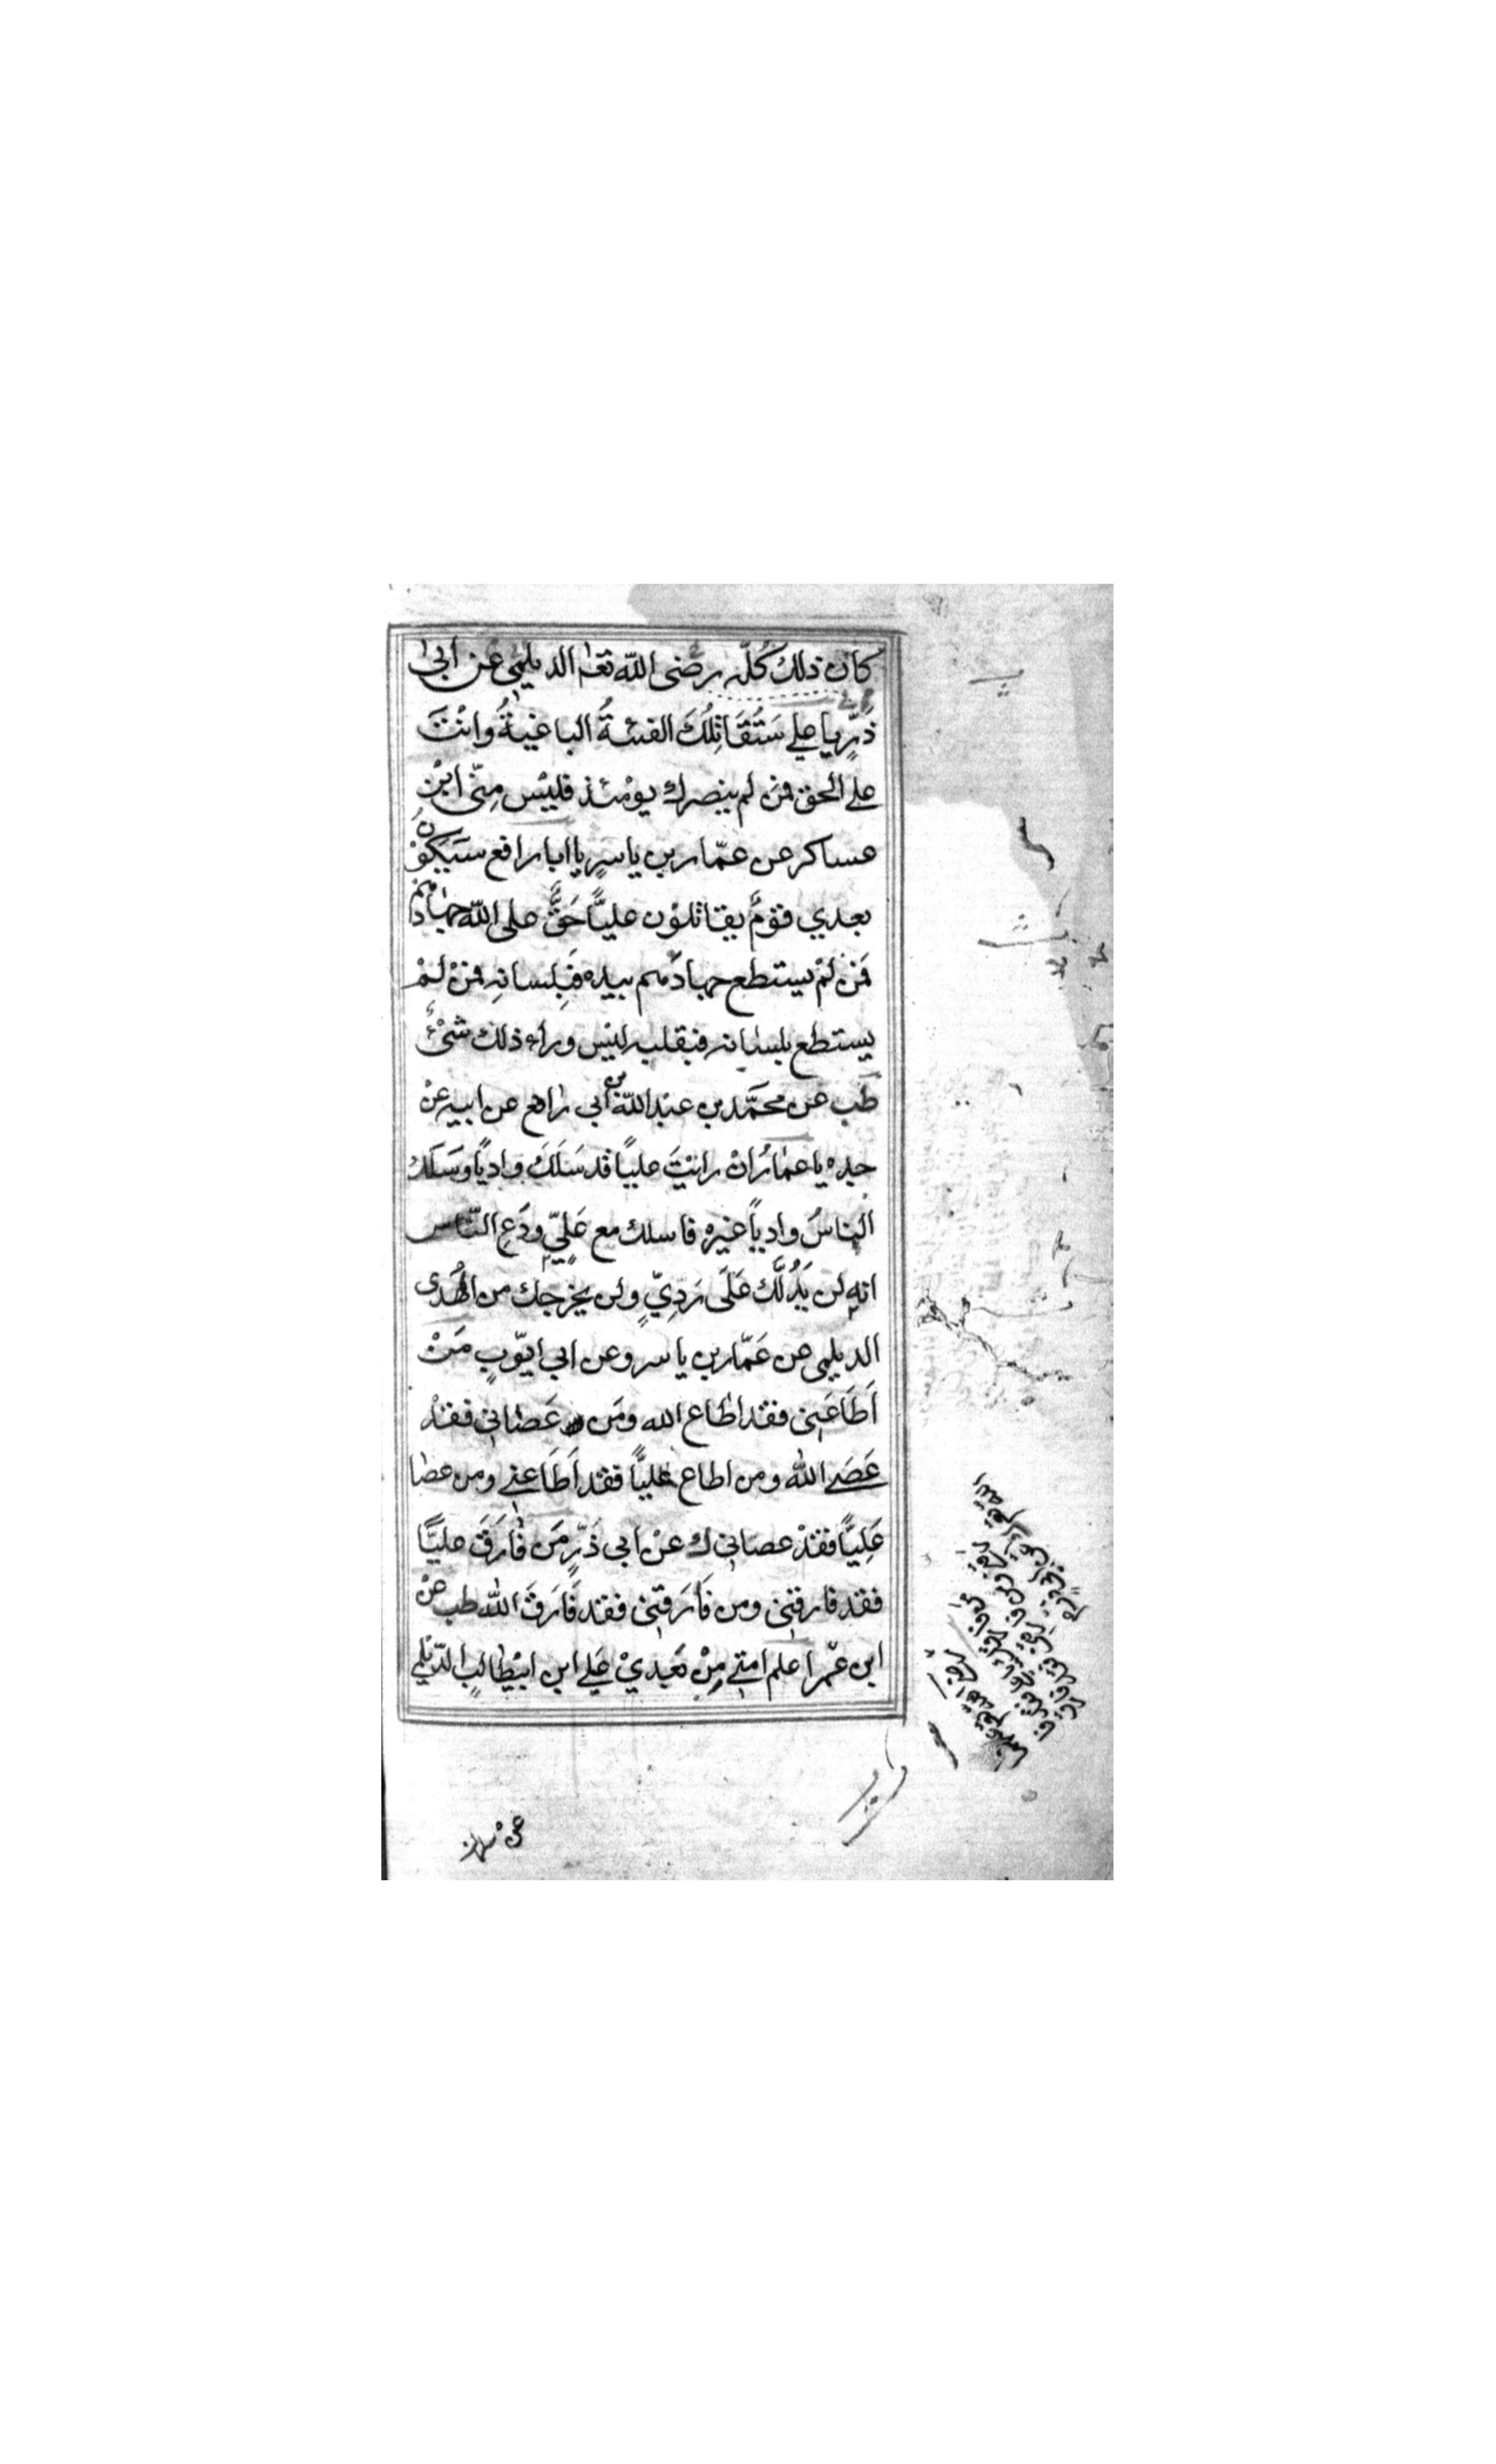 كان ذلك كُلّه رضى الله تعم الديلمى عن ابى
ذَرٍّ يا علي سَتُقَاتِلُكَ الفئةُ الباغيةُ وانْتَ
على الحق فمَن لم ينصرك يومْئذ فليْس مِنّى ابْن
عساكر عن عمّار بن ياسرٍ يا ابا رافع سَيَكوْنُ
بعدي قومٌ يقاتلوْن عليًّا حَقٌّ على الله جهادُهُم
فمَن لمْ يستطع جهادَهم بيده فَبِلسانِه فمَنْ لمْ
يستطع بلسانه فبقلبه ليْس وراء ذلك شىْءٌ
طب عن محمَّد بن عبد الله بن أبي رافع عن ابيه عنْ
جده يا عمارُ انْ رايْتَ عليًا قد سَلَكَ واديًا وسَلَك
الناسُ واديًا غيره فاسلك مع عَليٍّ ودَعِ النّاس
انه لن يَدُلَّك عَلَى رَدِيٍّ ولن يخرجك من الهُدى
الديلمى عن عَمّار بن ياسر وعن ابي ايّوبٍ مَنْ
أطَاعَنِى فقد اطاع الله ومَن عَصَانِي فقدْ
عَصَى الله ومن اطاع عليًّا فقد أَطَاعنِي ومن عصا
عَلِيًّا فقدْ عصاني ك عنْ ابي ذَرٍّ مَن فَارَقَ عليًّا
فقد فارقنِى ومن فَارَقَنِى فقد فَارَقَ الله طب عنْ
ابن عمر اعلم امتي مِنْ بَعْدِيْ عَلي ابن ابيْطالبٍ الدّيْلمي
عن سلمان